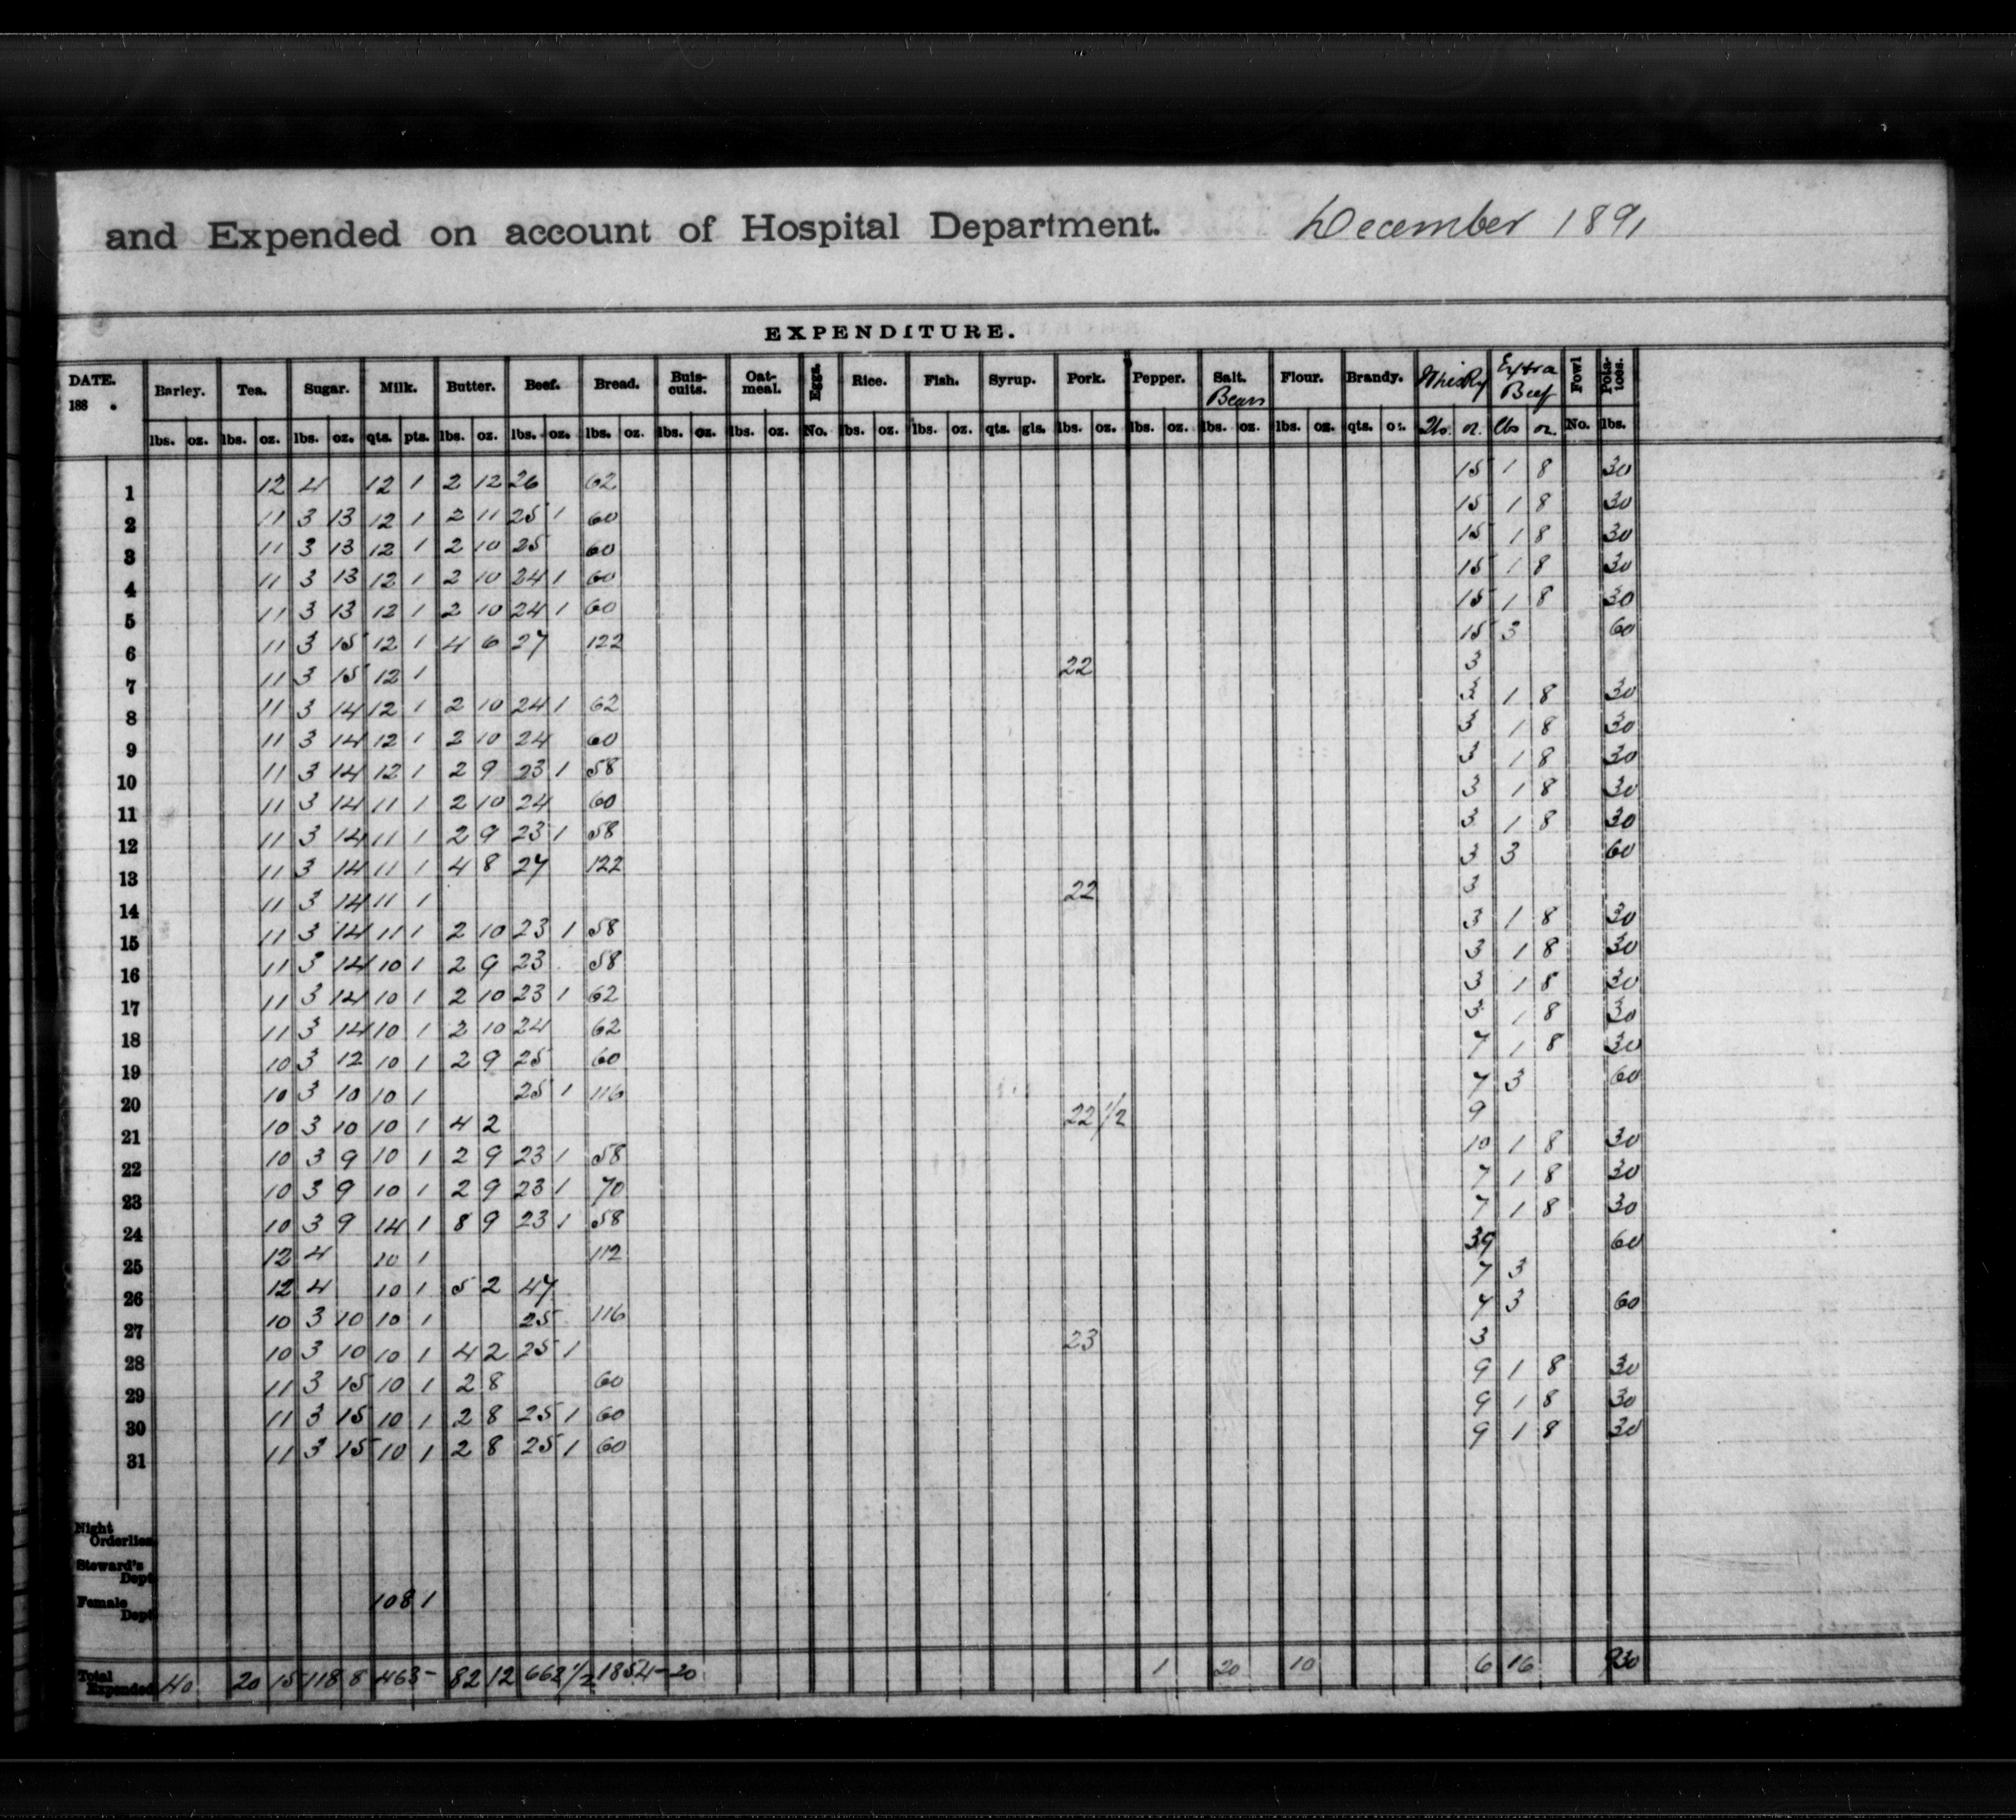 and Expended on account of Hospital Department. December 1891
EXPENDITURE.
DATE. 188 . Barley. Tea. Sugar. Milk. Butter. Beef. Bread. Buis-cuits. Oat-meal. Eggs. Rice. Fish. Syrup. Pork. Pepper. Salt. Beans Flour. Brandy. Whisky Extra Beef Fowl Pota-toes.
lbs. oz. lbs. oz. lbs. oz. qts. pts. lbs. oz. lbs. oz. lbs. oz. lbs. oz. lbs. oz. No. lbs. oz. lbs. oz. qts. gls. lbs. oz. lbs. oz. lbs. oz. lbs. oz. qts. oz. lbs. oz. lbs oz. No. lbs.
1 12 4 12 1 2 12 26 62 15 1 8 30
2 11 3 13 12 1 2 11 25 1 60 15 1 8 30
3 11 3 13 12 1 2 10 25 60 15 1 8 30
4 11 3 13 12 1 2 10 24 1 60 15 1 8 30
5 11 3 13 12 1 2 10 24 1 60 15 1 8 30
6 11 3 15 12 1 4 6 27 122 15 3 60
7 11 3 15 12 1 22 3
8 11 3 14 12 1 2 10 24 1 62 3 1 8 30
9 11 3 14 12 1 2 10 24 60 3 1 8 30
10 11 3 14 12 1 2 9 23 1 58 3 1 8 30
11 11 3 14 11 1 2 10 24 60 3 1 8 30
12 11 3 14 11 1 2 9 23 1 58 3 1 8 30
13 11 3 14 11 1 4 8 27 122 3 3 60
14 11 3 14 11 1 22 3
15 11 3 14 11 1 2 10 23 1 58 3 1 8 30
16 11 3 14 10 1 2 9 23 58 3 1 8 30
17 11 3 14 10 1 2 10 23 1 62 3 1 8 30
18 11 3 14 10 1 2 10 24 62 3 1 8 30
19 10 3 12 10 1 2 9 25 60 7 1 8 30
20 10 3 10 10 1 25 1 116 7 3 60
21 10 3 10 10 1 4 2 22 1/2 9
22 10 3 9 10 1 2 9 23 1 58 10 1 8 30
23 10 3 9 10 1 2 9 23 1 70 7 1 8 30
24 10 3 9 14 1 8 9 23 1 58 7 1 8 30
25 12 4 10 1 112 39 60
26 12 4 10 1 5 2 47 7 3
27 10 3 10 10 1 25 116 7 3 60
28 10 3 10 10 1 4 2 25 1 23 3
29 11 3 15 10 1 2 8 60 9 1 8 30
30 11 3 15 10 1 2 8 25 1 60 9 1 8 30
31 11 3 15 10 1 2 8 25 1 60 9 1 8 30
Night Orderlies
Steward's Dept
Female Dept 108 1
Total Expended 40 20 15 118 8 463 - 82 12 662 1/2 1854 - 20 1 20 10 6 16 930